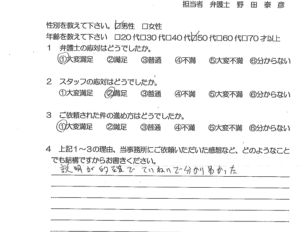 担当者 弁護士 野田泰彦
性別を教えて下さい。☑男性 □女性
年齢を教えて下さい □20代□30代□40代☑50代□60代□70才以上
1 弁護士の応対はどうでしたか。
①大変満足 ②満足 ③普通 ④不満 ⑤大変不満 ⑥分からない
2 スタッフの応対はどうでしたか。
①大変満足 ②満足 ③普通 ④不満 ⑤大変不満 ⑥分からない
3 ご依頼された件の進め方はどうでしたか。
①大変満足 ②満足 ③普通 ④不満 ⑤大変不満 ⑥分からない
4 上記1～3の理由、当事務所にご依頼いただいた感想など、どのようなこと
でも結構ですからお書きください。
説明が的確で ていねいで分かり易かった